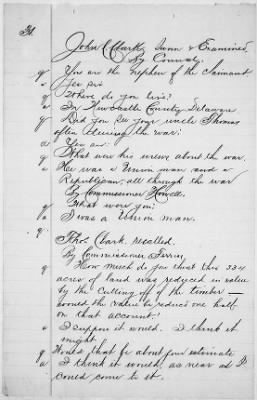 21.
John Clark, Sworn & Examined,
By Connoly.
q You are the nephew of the Claimant.
a Yes sir
q Where do you live?
a In Newcastle County, Delaware
q Did you see your uncle Thomas
often during the war?
a Yes sir.
q What were his views about the war.
a He was a Union man and a
Republican, all through the war
By Commissioner Howell.
q What were you?
a I was a Union man.
q
Thos. Clark recalled.
By Commissioner Ferris,
q How much do you that this 334
acres of land was reduced in value
by the cutting off of the timber —
would the value be reduced one half
on that account?
a I suppose it would. I think it
might
q Would that be about your estimate
a I think it would, as near as I
could come to it.